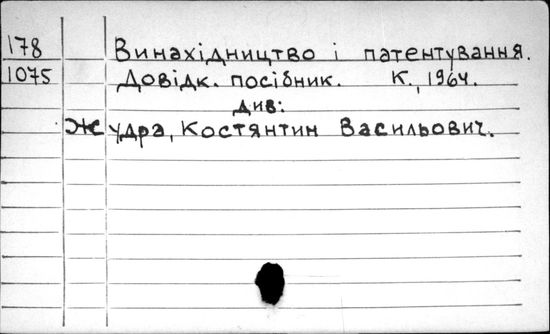 178 Винахідництво і патентування.
1075 Довідк. посібник. К., 1964.
див:
Жудра, Костянтин Васильович.